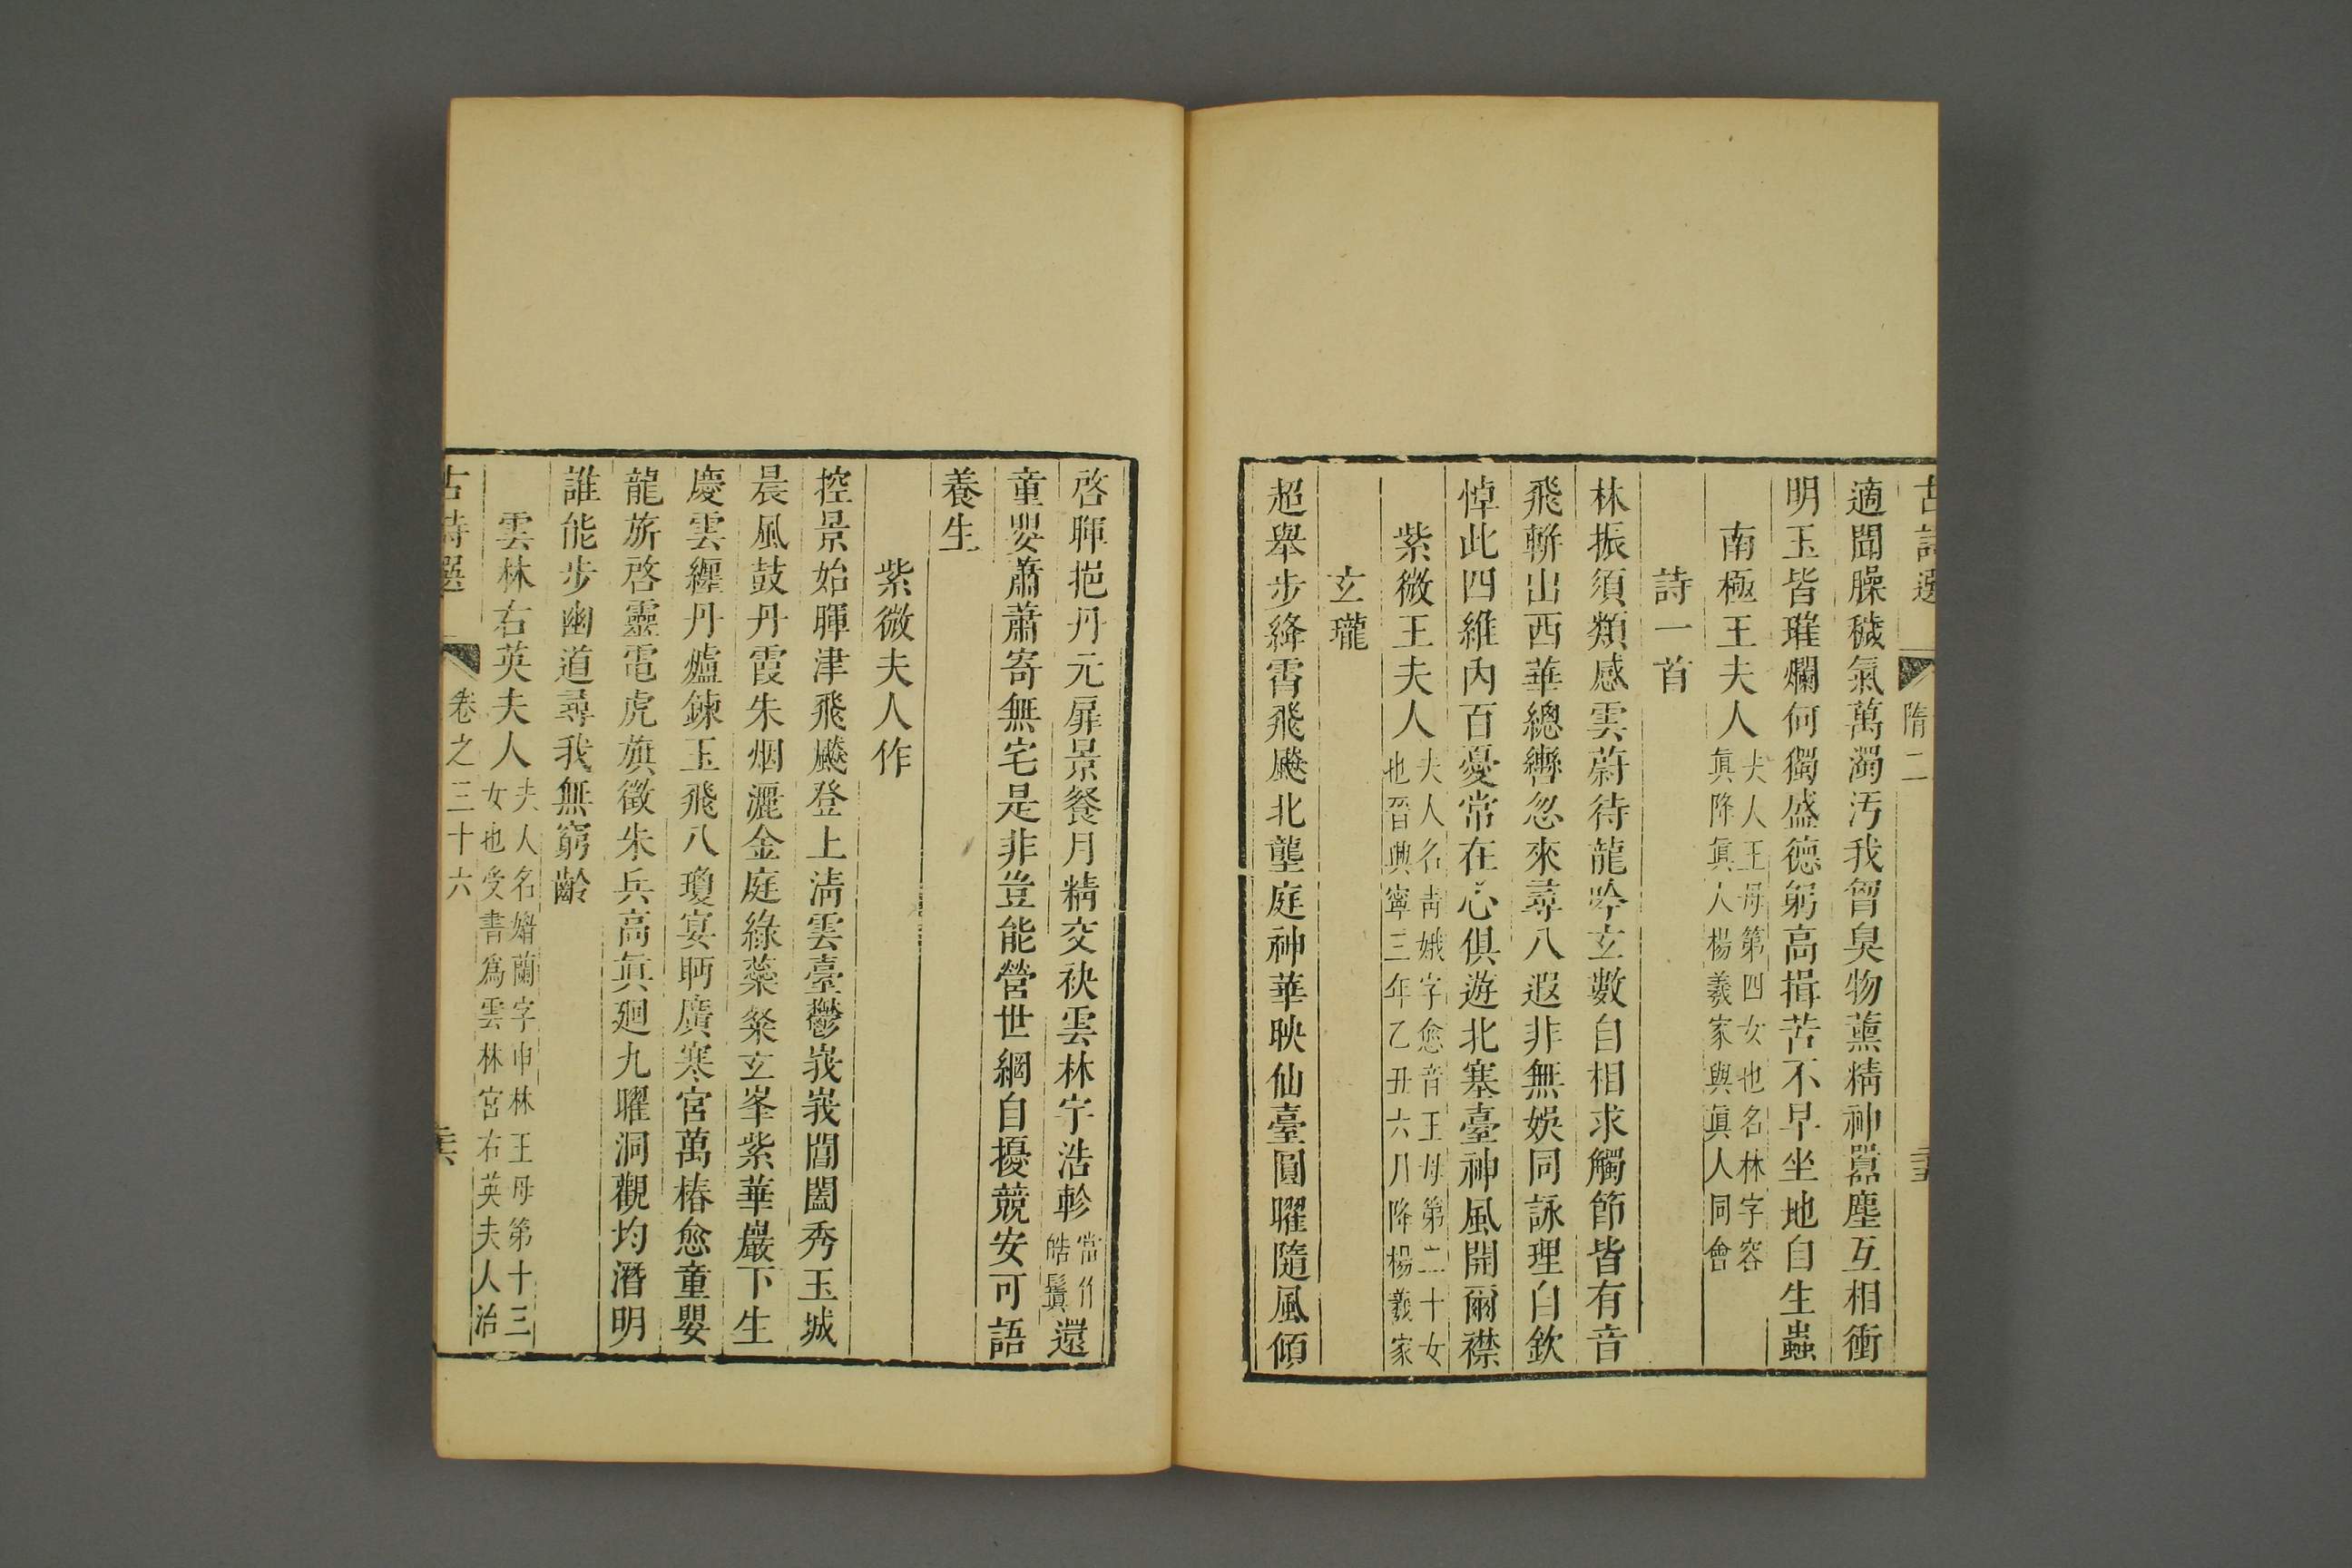 古詩選 隋二
適聞臊穢氣萬濁汚我胷臭物薰精神嚣塵互相衝
明玉皆璀爛何獨盛德躬高揖苦不早坐地自生蟲
南極王夫人夫人王母第四女也名林字容
眞降眞人楊羲家與眞人同會
詩一首
林振須類感雲蔚待龍吟玄數自相求觸節皆有音
飛軿出西華總轡忽來尋八遐非無娛同詠理自欽
悼此四維內百憂常在心俱遊北塞臺神風開爾襟
紫微王夫人夫人名靑娥字愈音王母第二十女
也晉興寧三年乙丑六月降楊羲家
玄瓏
超舉步絳霄飛飈北壟庭神華映仙臺圓曜隨風傾
啓暉挹丹元扉景餐月精交袂雲林宇浩軫當作
皓鬒還
童嬰蕭蕭寄無宅是非豈能營世綱自擾競安可語
養生
紫微夫人作
控景始暉津飛飈登上淸雲臺鬱峩峩閶闔秀玉城
晨風鼓丹霞朱烟灑金庭綠蘂粲玄峯紫華巖下生
慶雲纏丹爐鍊玉飛八瓊宴眄廣寒宮萬椿愈童嬰
龍旂啓靈電虎旗徵朱兵高眞廻九曜洞觀均潛明
誰能步幽道尋我無窮齡
雲林右英夫人夫人名媚蘭字申林王母第十三
女也受書爲雲林宮右英夫人治
古詩選 卷之三十六